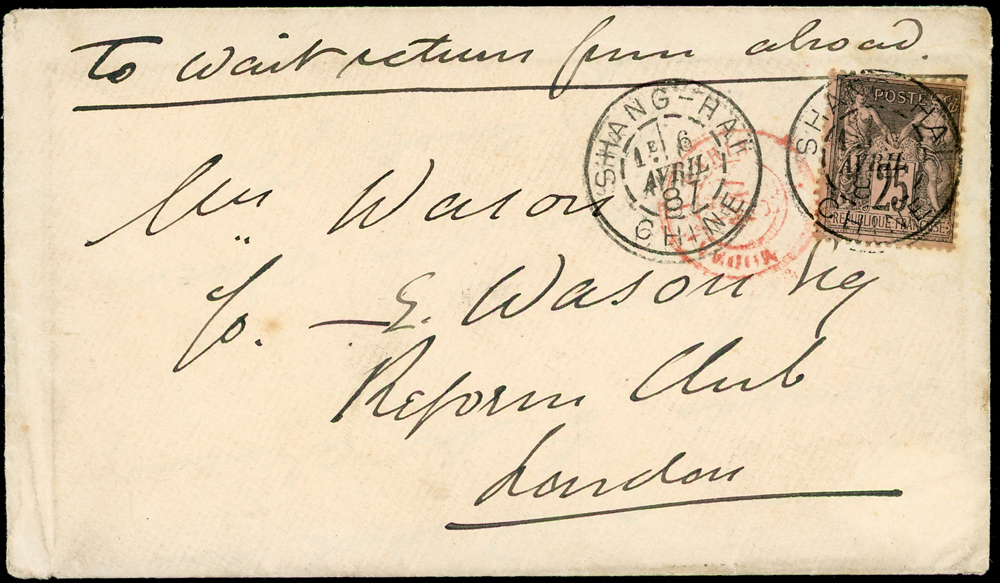 To Wait return from abroad.
SHANG-HAI
1E 6
AVRIL
CHINE
POSTE
25
REPUBLIQUE FRANÇAISE
Mrs Wason
c/o. — E. Wason Esq
Reform Club
London